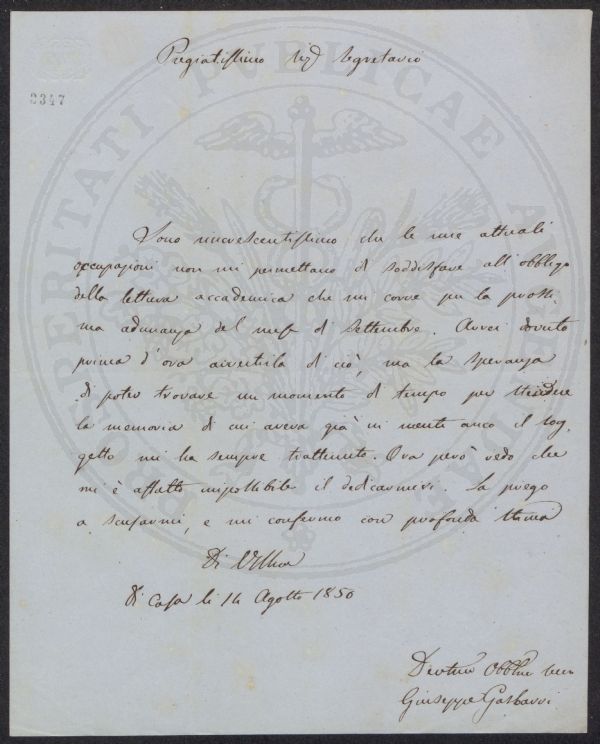 Pregiatissimo Sig.r Segretario
2347
Sono rincrescentissimo che le mie attuali
occupazioni non mi permettano di soddisfare all'obbligo
della lettura accademica che mi corre per la prossi-
ma adunanza del mese di Settembre. Avrei dovuto
prima d'ora avvertirla di ciò, ma la speranza
di poter trovare un momento di tempo per stendere
la memoria di cui aveva già in mente anco il sog-
getto mi ha sempre trattenuto. Ora però vedo che
mi è affatto impossibile il dedicarmivi. La prego
a scusarmi, e mi confermo con profonda stima
Di
Di Casa li 14 Agosto 1850
Giuseppe Gasbarri
PROSPERITATI PUBLICAE AUGENDAE